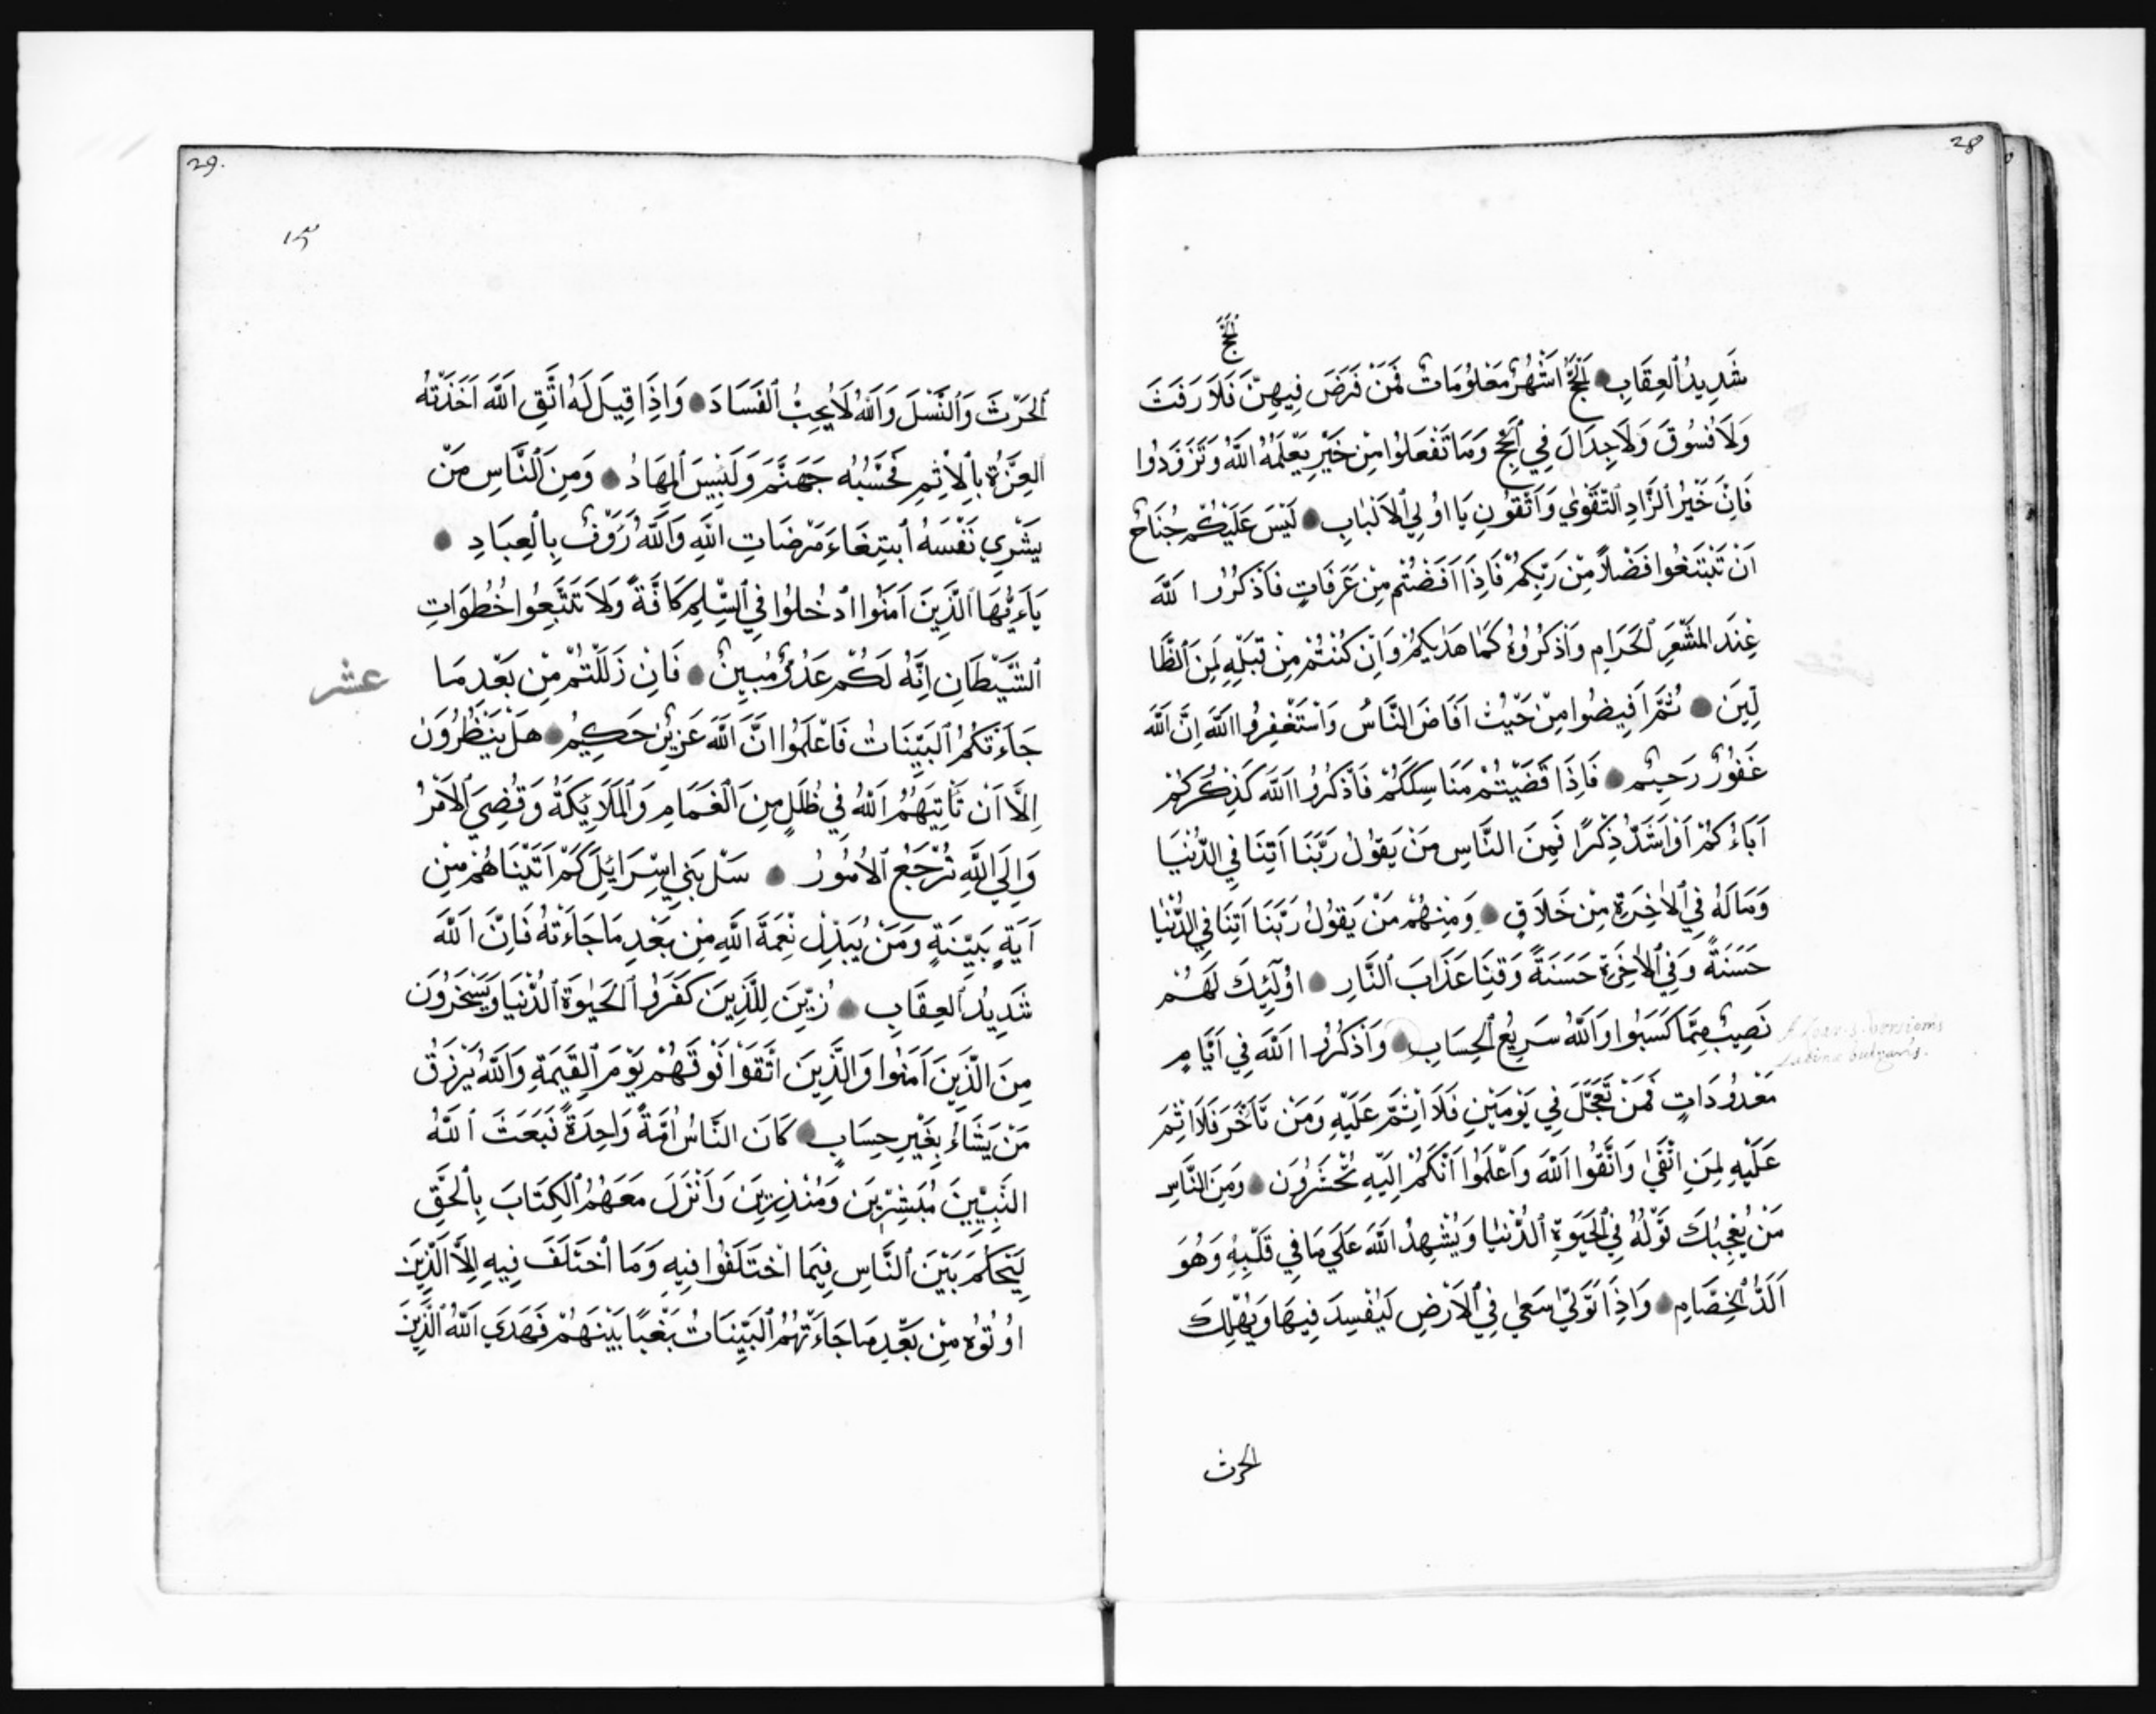 28
الحَجَّ
شَدِيدُ ٱلعِقَابِ ۝ الحَجُّ اَشْهُرٌ مَعْلُومَاتٌ فَمَنْ فَرَضَ فِيهِنَّ فَلَا رَفَثَ
وَلَا فُسُوقَ وَلَا جِدَالَ فِي ٱلحَجِّ وَمَا تَفْعَلُوا مِنْ خَيْرٍ يَعْلَمْهُ اللَّهُ وَتَزَوَّدُوا
فَاِنَّ خَيْرَ ٱلزَّادِ ٱلتَّقْوَي وَٱتَّقُونِ يَا اوُلِي ٱلاَلْبَابِ ۝ لَيْسَ عَلَيْكُمْ جُنَاحٌ
اَنْ تَبْتَغُوا فَضْلاً مِنْ رَبِّكُمْ فَاِذَا اَفَضْتُمْ مِنْ عَرَفَاتٍ فَٱذْكُرُوا اللَّهَ
عِنْدَ المَشْعَرِ ٱلحَرَامِ وَٱذْكُرُوهُ كَمَا هَدَيكُمْ وَاِنْ كُنْتُمْ مِنْ قَبْلِهِ لَمِنَ ٱلضَّا
لِّينَ ۝ ثُمَّ اَفِيضُوا مِنْ حَيْثُ اَفَاضَ النَّاسُ وَاسْتَغْفِرُوا اللَّهَ اِنَّ اللَّهَ
غَفُورٌ رَحِيمٌ ۝ فَاِذَا قَضَيْتُمْ مَنَاسِكَكُمْ فَٱذْكُرُوا اللَّهَ كَذِكْرِكُمْ
اَبَاءَكُمْ اَوْ اَشَدَّ ذِكْرًا فَمِنَ النَّاسِ مَنْ يَقُولُ رَبَّنَا اَتِنَا فِي الدُّنْيَا
وَمَا لَهُ فِي ٱلاَخِرَةِ مِنْ خَلَاقٍ ۝ وَمِنْهُمْ مَنْ يَقُولُ رَبَّنَا اَتِنَا فِي الدُّنْيَا
حَسَنَةً وَفِي ٱلاَخِرَةِ حَسَنَةً وَقِنَا عَذَابَ ٱلنَّارِ ۝ اوُلَٓئِكَ لَهُمْ
نَصِيبٌ مِمَّا كَسَبُوا وَاللَّهُ سَرِيعُ ٱلحِسَابِ ۝ وَٱذْكُرُوا اللَّهَ فِي اَيَّامٍ
مَعْدُودَاتٍ فَمَنْ تَعَجَّلَ فِي يَوْمَيْنِ فَلَا اِثْمَ عَلَيْهِ وَمَنْ تَاَخَّرَ فَلَا اِثْمَ
عَلَيْهِ لِمَنِ اتَّقَي وَاتَّقُوا اللَّهَ وَٱعْلَمُوا اَنَّكُمْ اِلَيْهِ تُحْشَرُونَ ۝ وَمِنَ النَّاسِ
مَنْ يُعْجِبُكَ قَوْلُهُ فِي ٱلحَيَوةِ ٱلدُّنْيَا وَيُشْهِدُ اللَّهَ عَلَي مَا فِي قَلْبِهِ وَهُوَ
اَلَدُّ ٱلخِصَامِ ۝ وَاِذَا تَوَلَّي سَعَي فِي ٱلاَرْضِ لِيُفْسِدَ فِيهَا وَيُهْلِكَ
الحرث
29.
ٱلحَرْثَ وَٱلنَّسْلَ وَاللَّهُ لَا يُحِبُّ ٱلفَسَادَ ۝ وَاِذَا قِيلَ لَهُ اتَّقِ اللَّهَ اَخَذَتْهُ
ٱلعِزَّةُ بِٱلاِثْمِ فَحَسْبُهُ جَهَنَّمُ وَلَبِيسَ ٱلمِهَادُ ۝ وَمِنَ ٱلنَّاسِ مَنْ
يَشْرِي نَفْسَهُ ٱبْتِغَاءَ مَرْضَاتِ اللَّهِ وَاللَّهُ رَوُفٌ بِٱلعِبَادِ ۝
يَاَءيُّهَا ٱلَّذِينَ اَمَنُوا ادْخُلُوا فِي ٱلسِّلْمِ كَافَّةً وَلَا تَتَّبِعُوا خُطُوَاتِ
ٱلشَّيْطَانِ اِنَّهُ لَكُمْ عَدُوٌّ مُبِينٌ ۝ فَاِنْ زَلَلْتُمْ مِنْ بَعْدِ مَا
عشر
جَاءَتْكُمُ ٱلبَيِّنَاتُ فَاعْلَمُوا اَنَّ اللَّهَ عَزِيزٌ حَكِيمٌ ۝ هَلْ يَنْظُرُونَ
اِلَّا اَنْ يَاْتِيَهُمُ اللَّهُ فِي ظُلَلٍ مِنَ ٱلغَمَامِ وَٱلمَلَايِكَةُ وَقُضِيَ ٱلاَمْرُ
وَاِلَي اللَّهِ تُرْجَعُ ٱلاُمُورُ ۝ سَلْ بَنِي اِسْرَايِلَ كَمْ اَتَيْنَاهُمْ مِنْ
اَيَةٍ بَيِّنَةٍ وَمَنْ يُبَدِّلْ نِعْمَةَ اللَّهِ مِنْ بَعْدِ مَا جَاءَتْهُ فَاِنَّ اللَّهَ
شَدِيدُ ٱلعِقَابِ ۝ زُيِّنَ لِلَّذِينَ كَفَرُوا ٱلحَيَوةُ ٱلدُّنْيَا وَيَسْخَرُونَ
مِنَ الَّذِينَ اَمَنُوا وَالَّذِينَ اتَّقَوْا فَوْقَهُمْ يَوْمَ ٱلقِيَمَةِ وَاللَّهُ يَرْزُقُ
مَنْ يَشَاءُ بِغَيْرِ حِسَابٍ ۝ كَانَ النَّاسُ اُمَّةً وَاحِدَةً فَبَعَثَ ٱللَّهُ
النَّبِيِّينَ مُبَشِّرِينَ وَمُنْذِرِينَ وَاَنْزَلَ مَعَهُمُ ٱلكِتَابَ بِٱلحَقِّ
لِيَحْكُمَ بَيْنَ ٱلنَّاسِ فِيمَا اخْتَلَفُوا فِيهِ وَمَا اخْتَلَفَ فِيهِ اِلَّا الَّذِينَ
اوُتُوهُ مِنْ بَعْدِ مَا جَاءَتْهُمُ ٱلبَيِّنَاتُ بَغْيًا بَيْنَهُمْ فَهَدَي اللَّهُ الَّذِينَ